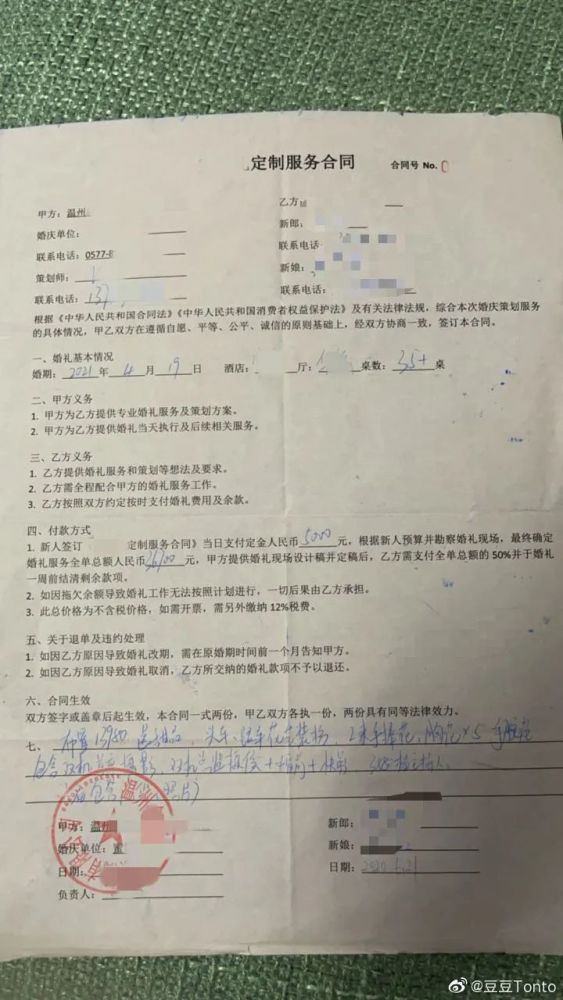 定制服务合同 合同号 No.
甲方：温州
乙方
婚庆单位：
新郎：
联系电话：0577-8
联系电话
策划师：
新娘：
联系电话：137
联系电话：
根据《中华人民共和国合同法》《中华人民共和国消费者权益保护法》及有关法律法规，综合本次婚庆策划服务
的具体情况，甲乙双方在遵循自愿、平等、公平、诚信的原则基础上，经双方协商一致，签订本合同。
一、婚礼基本情况
婚期：2021年4月19日 酒店： 厅： 桌数：35+桌
二、甲方义务
1. 甲方为乙方提供专业婚礼服务及策划方案。
2. 甲方为乙方提供婚礼当天执行及后续相关服务。
三、乙方义务
1. 乙方提供婚礼服务和策划等想法及要求。
2. 乙方需全程配合甲方的婚礼服务工作。
3. 乙方按照双方约定按时支付婚礼费用及余款。
四、付款方式
1. 新人签订 定制服务合同》当日支付定金人民币5000元，根据新人预算并勘察婚礼现场，最终确定
婚礼服务全单总额人民币元，甲方提供婚礼现场设计稿并定稿后，乙方需支付全单总额的50%并于婚礼
一周前结清剩余款项。
2. 如因拖欠余额导致婚礼工作无法按照计划进行，一切后果由乙方承担。
3. 此总价格为不含税价格，如需开票，需另外缴纳12%税费。
五、关于退单及违约处理
1. 如因乙方原因导致婚礼改期，需在原婚期时间前一个月告知甲方。
2. 如因乙方原因导致婚礼取消，乙方所交纳的婚礼款项不予以退还。
六、合同生效
双方签字或盖章后起生效，本合同一式两份，甲乙双方各执一份，两份具有同等法律效力。
七、布置 送甜品，头车 花 手捧花，胸花×5
包含双机
包含 照片）
甲方：温州
新郎：
婚庆单位：
新娘：
日期：
日期：2020
负责人：
@豆豆Tonto